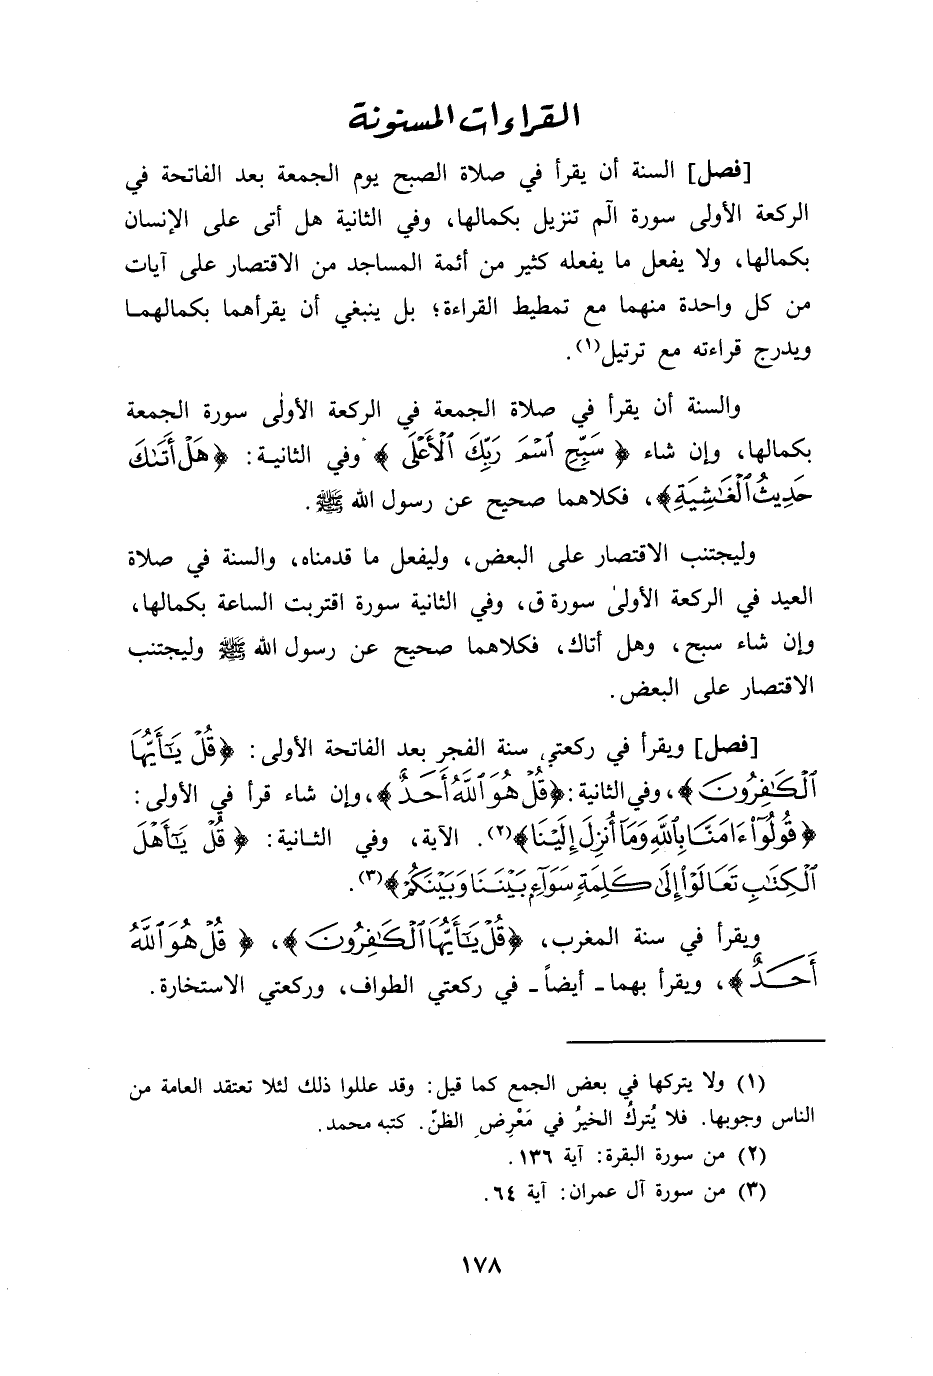 القراءات المسنونة
[فصل] السنة أن يقرأ في صلاة الصبح يوم الجمعة بعد الفاتحة في
الركعة الأولى سورة الٓم تنزيل بكمالها، وفي الثانية هل أتى على الإنسان
بكمالها، ولا يفعل ما يفعله كثير من أئمة المساجد من الاقتصار على آيات
من كل واحدة منهما مع تمطيط القراءة؛ بل ينبغي أن يقرأهما بكمالهمـا
ويدرج قراءته مع ترتيل(١).
والسنة أن يقرأ في صلاة الجمعة في الركعة الأولٰى سورة الجمعة
بكمالها، وإن شاء ﴿ سَبِّحِ ٱسْمَ رَبِّكَ ٱلْأَعْلَى ﴾ وفي الثانيـة: ﴿هَلْ أَتَىٰكَ
حَدِيثُ ٱلْغَـٰشِيَةِ﴾، فكلاهما صحيح عن رسول الله ﷺ.
وليجتنب الاقتصار على البعض، وليفعل ما قدمناه، والسنة في صلاة
العيد في الركعة الأولىٰ سورة ق، وفي الثانية سورة اقتربت الساعة بكمالها،
وإن شاء سبح، وهل أتاك، فكلاهما صحيح عن رسول الله ﷺ وليجتنب
الاقتصار على البعض.
[فصل] ويقرأ في ركعتي سنة الفجر بعد الفاتحة الأولى: ﴿قُلْ يَـٰٓأَيُّهَا
ٱلْكَـٰفِرُونَ﴾، وفي الثانية: ﴿قُلْ هُوَ ٱللَّهُ أَحَدٌ﴾، وإن شاء قرأ في الأولى:
﴿قُولُوٓا۟ ءَامَنَّـا بِٱللَّهِ وَمَآ أُنزِلَ إِلَيْنَا﴾(٢). الآية، وفي الثـانية: ﴿ قُلْ يَـٰٓأَهْلَ
ٱلْكِتَـٰبِ تَعَالَوْا۟ إِلَىٰ كَلِمَةٍ سَوَآءٍۭ بَيْنَـنَا وَبَيْنَكُمْ﴾(٣).
ويقرأ في سنة المغرب، ﴿قُلْ يَـٰٓأَيُّهَا ٱلْكَـٰفِرُونَ﴾، ﴿ قُلْ هُوَ ٱللَّهُ
أَحَـدٌ﴾، ويقرأ بهما ـ أيضاً ـ في ركعتي الطواف، وركعتي الاستخارة.
(١) ولا يتركها في بعض الجمع كما قيل: وقد عللوا ذلك لئلا تعتقد العامة من
الناس وجوبها. فلا يُتركُ الخيرُ في مَعْرِضِ الظنّ. كتبه محمد.
(٢) من سورة البقرة: آية ١٣٦.
(٣) من سورة آل عمران: آية ٦٤.
١٧٨